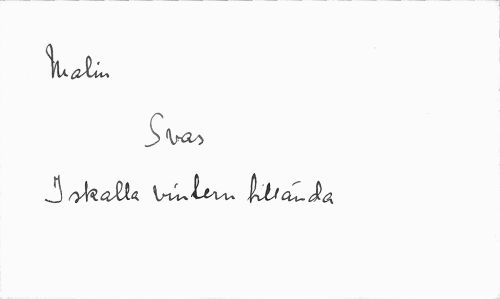 Malin
Svas
Iskalla vintern tillända